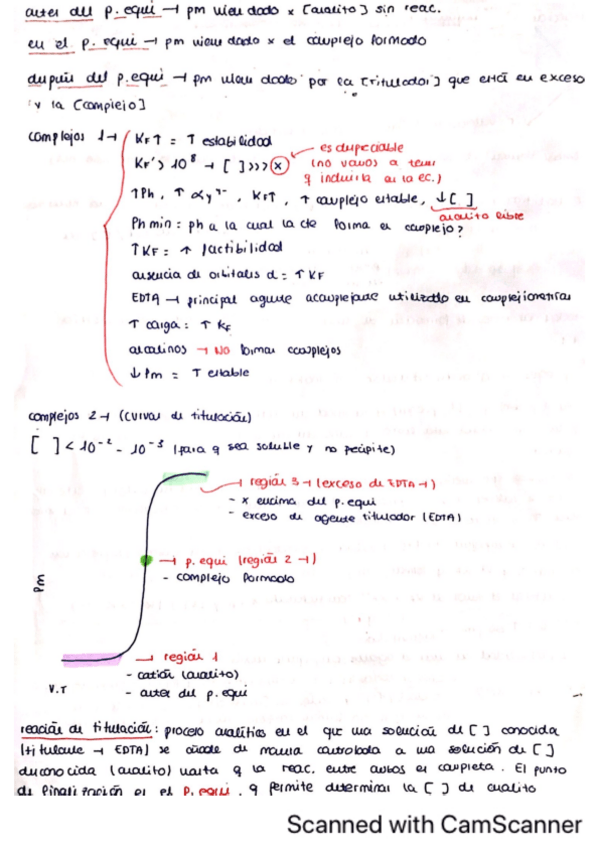 antes del p. equi → pm viene dado x [analito] sin reac.
en el p. equi → pm viene dado x el complejo formado
después del p. equi → pm viene dado por la [titulador] que está en exceso
y la [complejo]
complejos 1→ KF↑ = ↑ estabilidad
KF'> 10⁸ → [ ]>>> ⊗ es despreciable
(no vamos a tener
q incluirla en la ec.)
↑Ph, ↑ αy⁴⁻, KF↑, ↑ complejo estable, ↓[ ]
analito libre
Ph min: ph a la cual la cte forma el complejo?
↑KF = ↑ factibilidad
ausencia de orbitales d = ↑KF
EDTA → principal agente acomplejante utilizado en complejiometrías
↑ carga: ↑ KF
alcalinos → NO forman complejos
↓ Pm = ↑ estable
complejos 2→ (curvas de titulación)
[ ] < 10⁻² - 10⁻³ (para q sea soluble y no precipite)
→ región 3 → (exceso de EDTA →)
- x encima del p. equi
- exceso de agente titulador (EDTA)
→ p. equi (región 2 →)
- complejo formado
Pm
→ región 1
- catión (analito)
- antes del p. equi
V.T
reacción de titulación: proceso analítico en el que una solución de [ ] conocida
(titulante → EDTA) se añade de manera controlada a una solución de [ ]
desconocida (analito) hasta q la reac. entre ambos es completa. El punto
de finalización es el p. equi, q permite determinar la [ ] de analito
Scanned with CamScanner